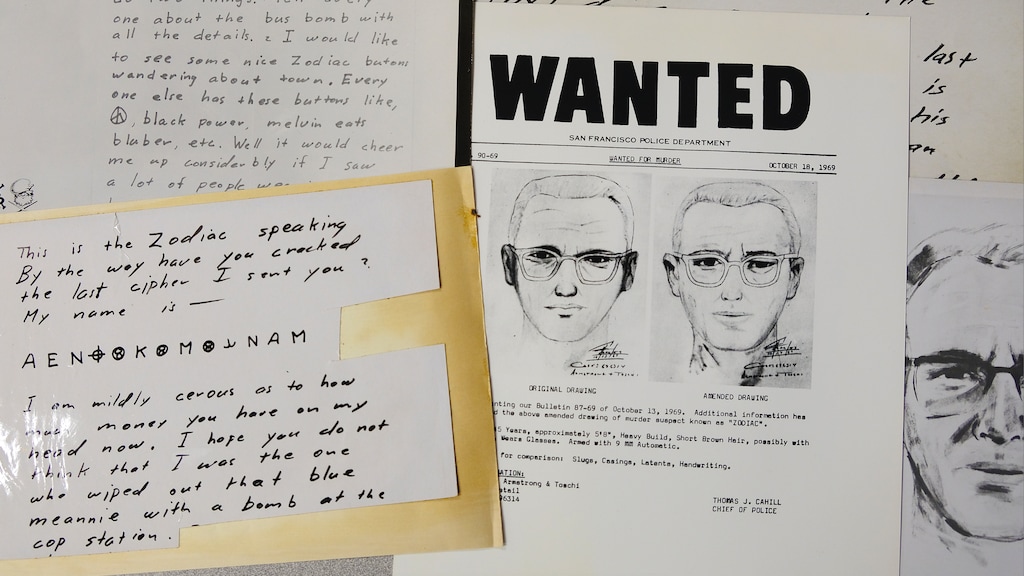 one about the bus bomb with
all the details. & I would like
to see some nice Zodiac butons
wandering about town. Every
one else has these buttons like,
black power, melvin eats
bluber, etc. Well it would cheer
me up considerbly if I saw
a lot of people
This is the Zodiac speaking
By the way have you cracked
the last cipher I sent you?
My name is —
A E N ⊕ K M NAM
I am mildly cerous as to how
much money you have on my
head now. I hope you do not
think that I was the one
who wiped out that blue
meannie with a bomb at the
cop station.
WANTED
SAN FRANCISCO POLICE DEPARTMENT
90-69 WANTED FOR MURDER OCTOBER 18, 1969
ORIGINAL DRAWING AMENDED DRAWING
nting our Bulletin 87-69 of October 13, 1969. Additional information has
d the above amended drawing of murder suspect known as "ZODIAC".
5 Years, approximately 5'8", Heavy Build, Short Brown Hair, possibly with
Wears Glasses. Armed with 9 MM Automatic.
for comparison: Slugs, Casings, Latents, Handwriting.
ATION:
Armstrong & Toschi
etail
96314
THOMAS J. CAHILL
CHIEF OF POLICE
last
is
his